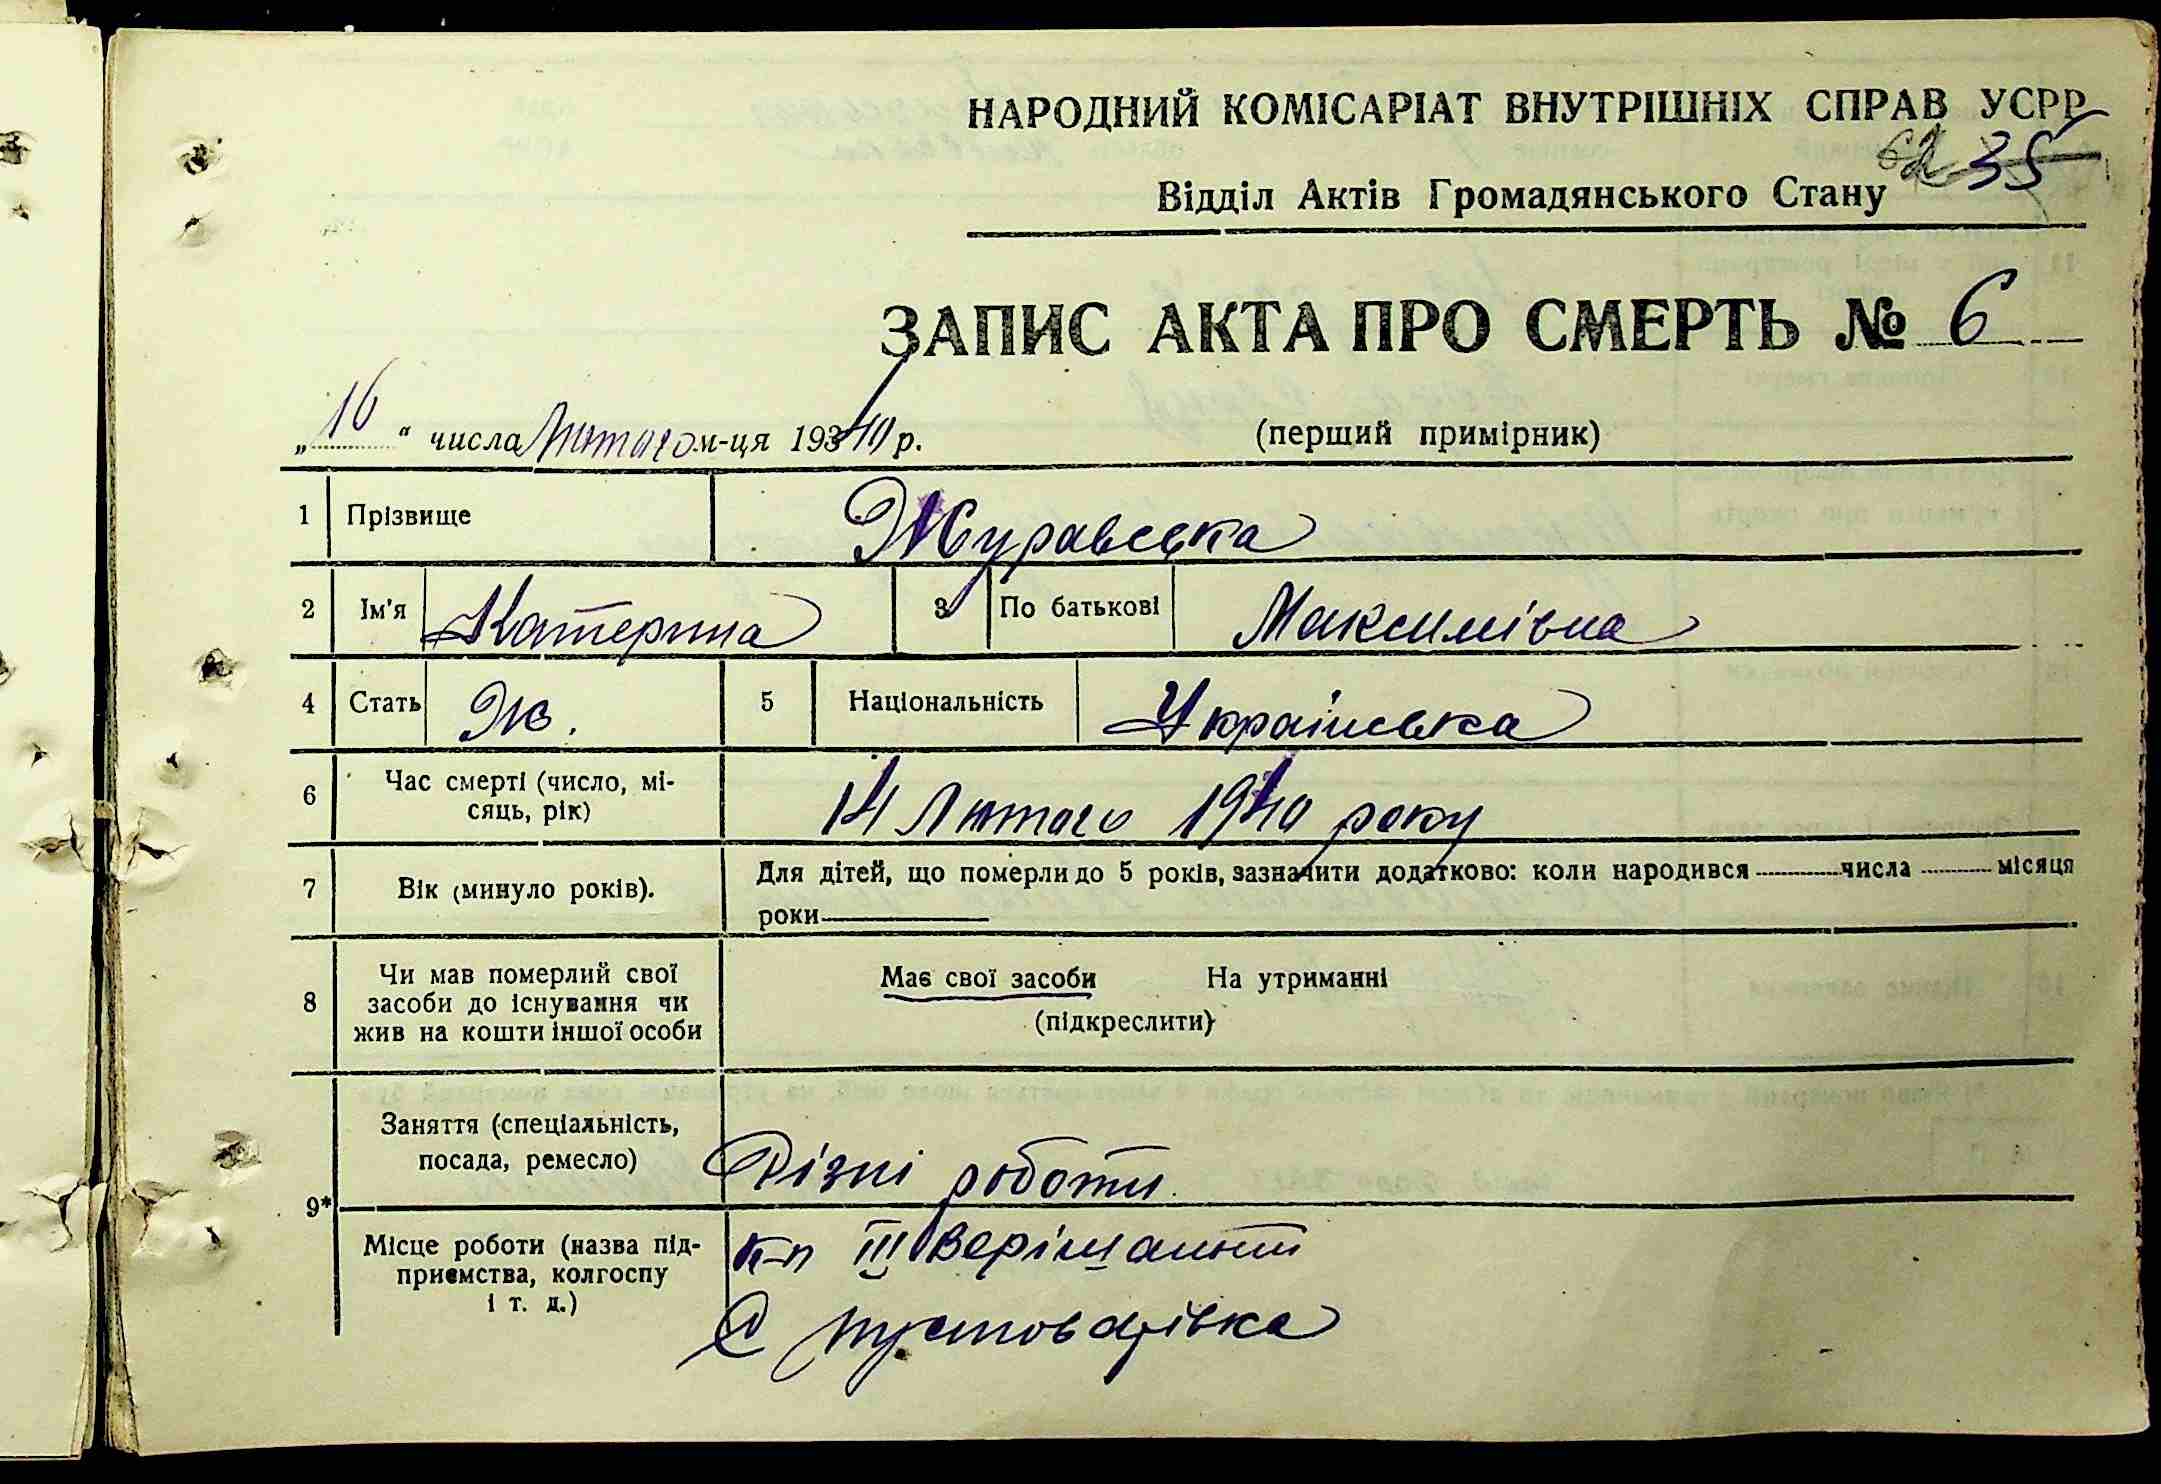 НАРОДНИЙ КОМІСАРІАТ ВНУТРІШНІХ СПРАВ УСРР
62 35
Відділ Актів Громадянського Стану
ЗАПИС АКТА ПРО СМЕРТЬ № 6
„16“ числа Лютого м-ця 1940 р. (перший примірник)
1 Прізвище Журавська
2 Ім'я Катерина 3 По батькові Максимівна
4 Стать Ж. 5 Національність Українська
6 Час смерті (число, мі-
сяць, рік) 14 Лютого 1940 року
7 Вік (минуло років). Для дітей, що померли до 5 років, зазначити додатково: коли народився числа місяця
роки
8 Чи мав померлий свої
засоби до існування чи
жив на кошти іншої особи
Має свої засоби На утриманні
(підкреслити)
9* Заняття (спеціальність,
посада, ремесло) Різні роботи
Місце роботи (назва під-
приємства, колгоспу
і т. д.)
к-п ІІІ Верішальний
С Пустоварівка